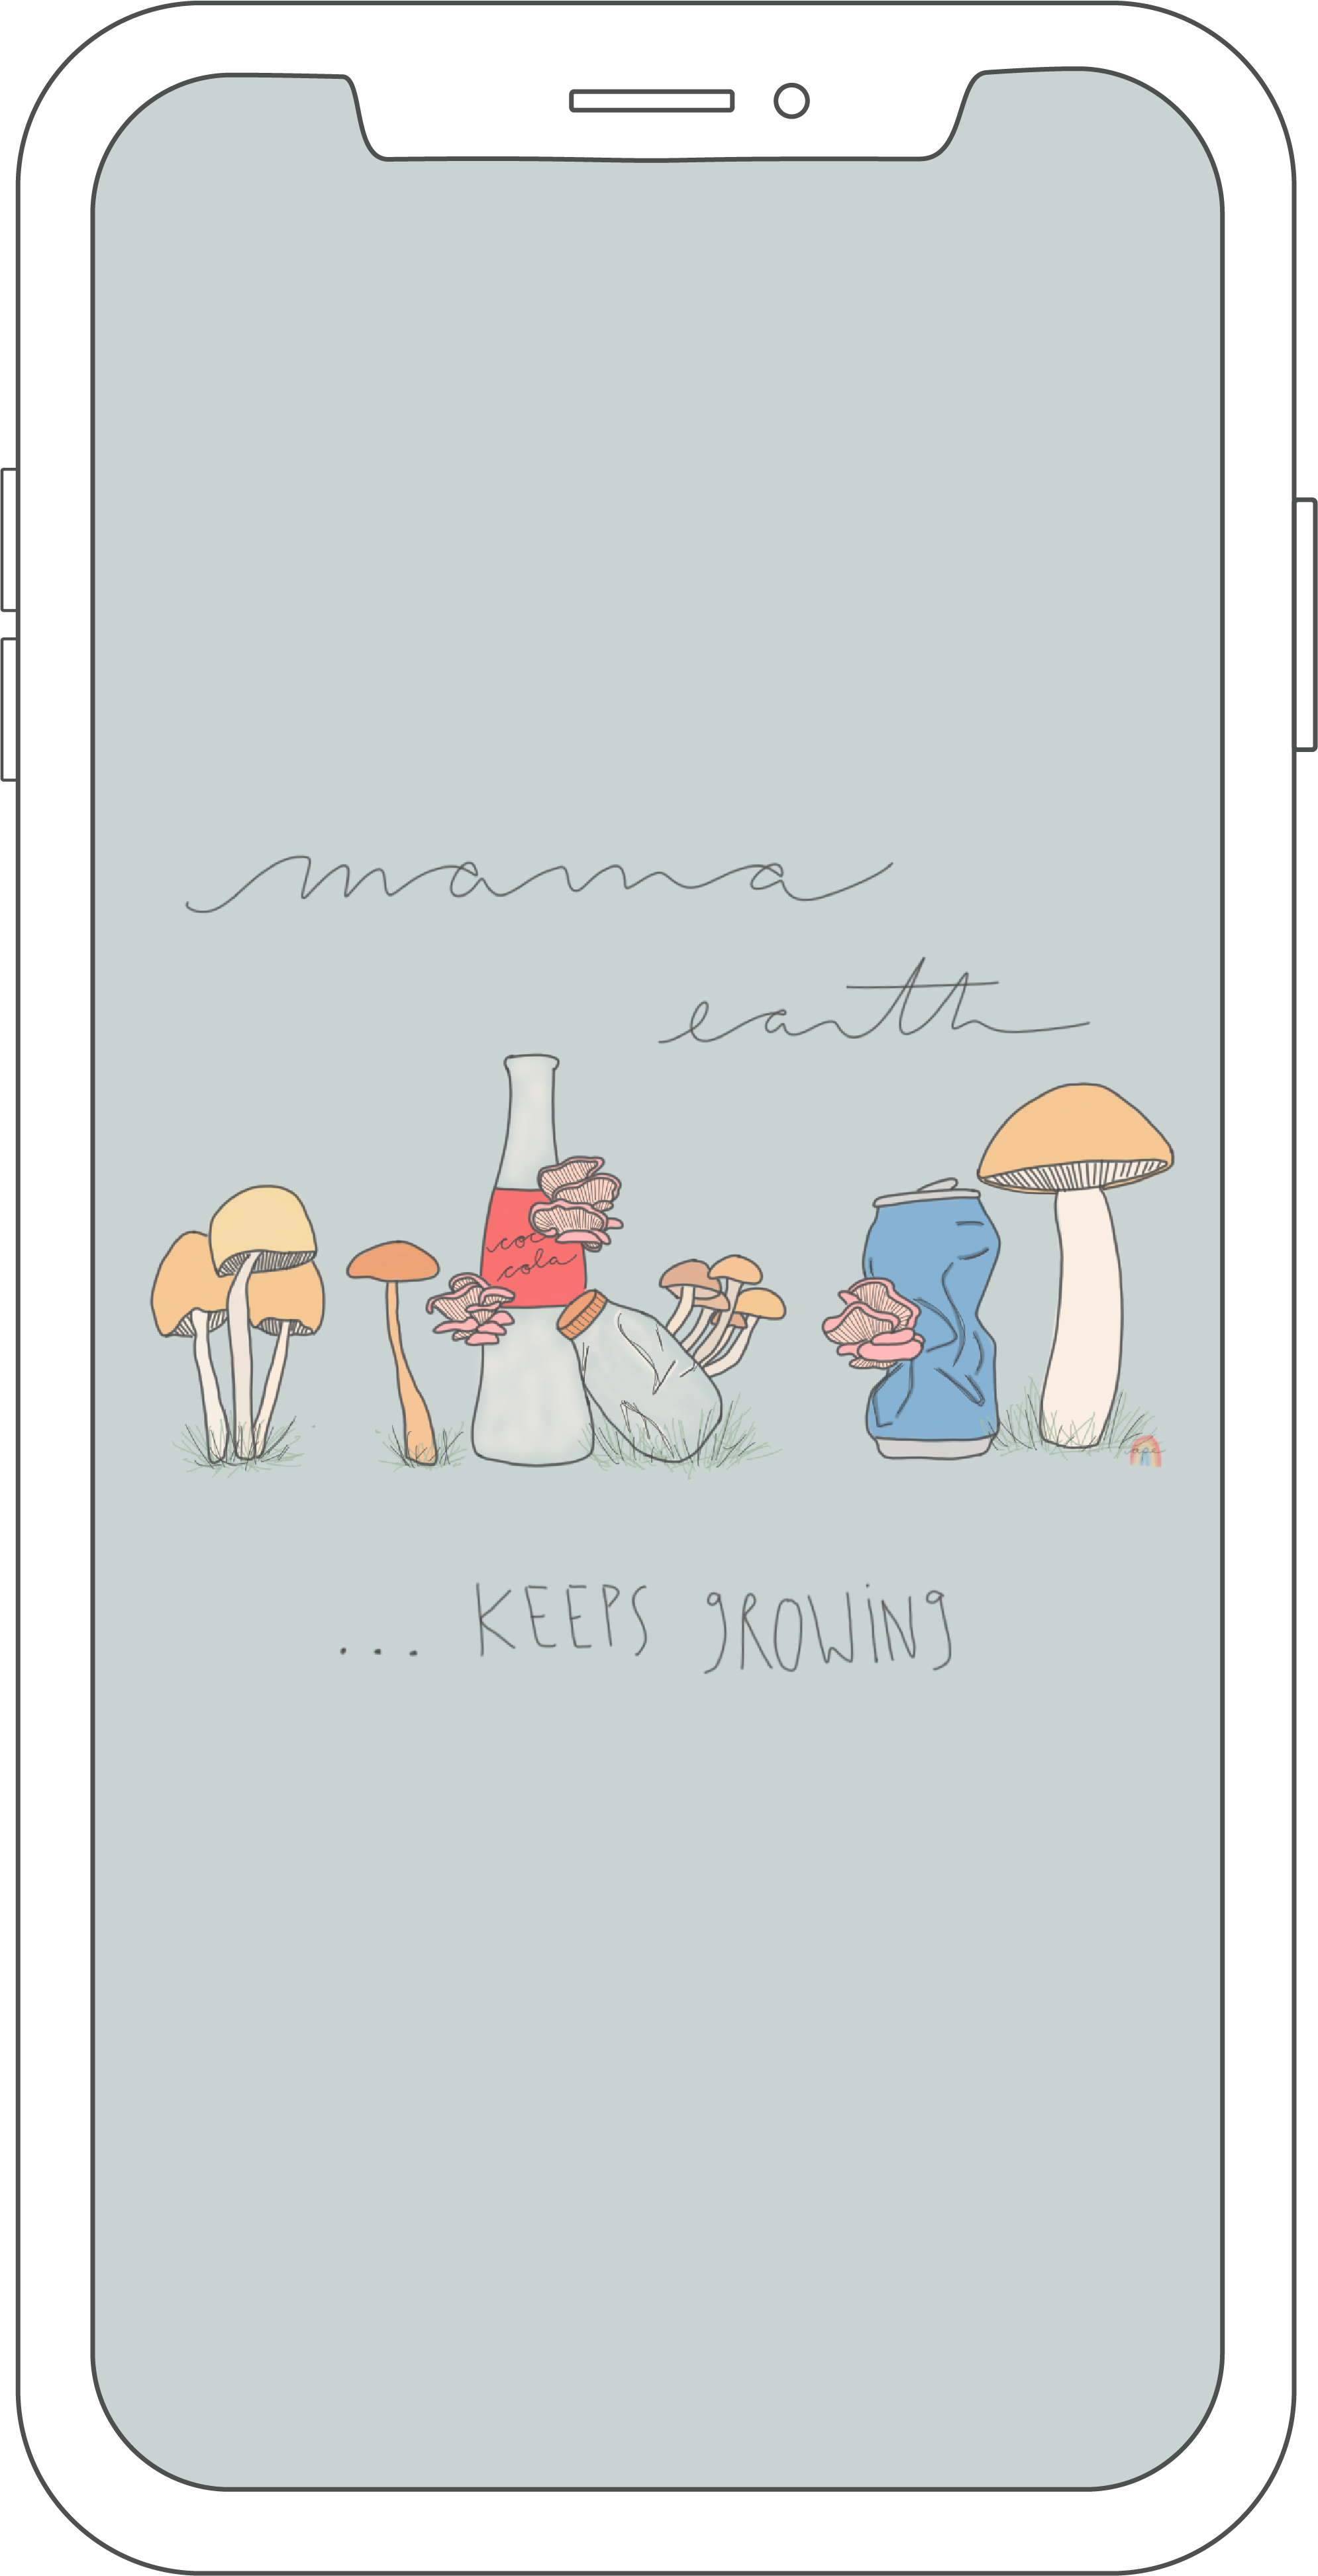 mama
earth
coc
cola
... KEEPS gROWiNg